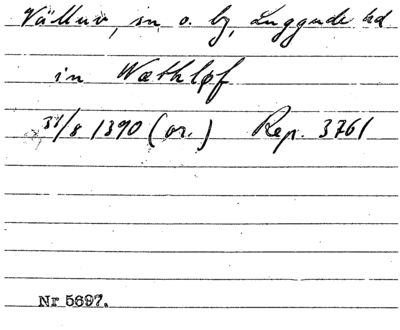 Välluv, sn o. by, Luggude hd
in Wæthløf
31/8 1390 (or.) Rep. 3761
Nr 5697.